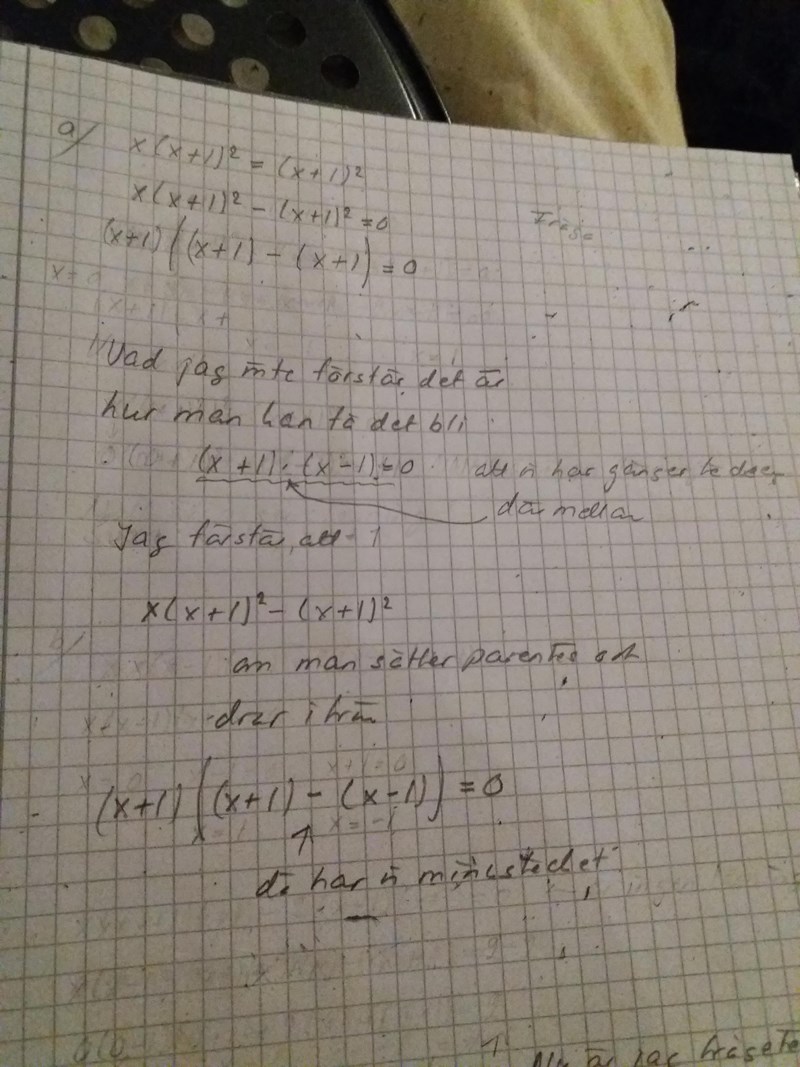 a/ x(x+1)² = (x+1)²
x(x+1)² - (x+1)² = 0
(x+1)((x+1) - (x+1)) = 0
Vad jag inte förstår det är
hur man kan få det bli
(x+1)·(x-1)=0 att vi har gånger tecken
där mellan
Jag förstår att
x(x+1)² - (x+1)²
om man sätter parentes och
drar ifrån
(x+1)((x+1) - (x-1)) = 0
då har vi minustecket